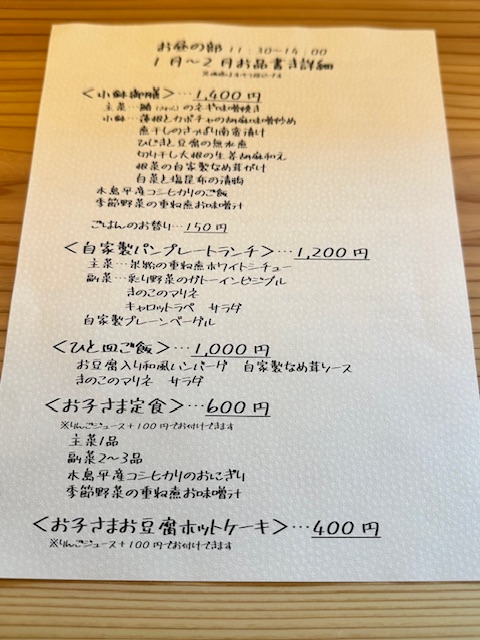 お昼の部 11:30~14:00
1月~2月お品書き詳細
※価格はすべて税込です
<小鉢御膳>…1,400円
主菜…鯖(さば)のネギ味噌焼き
小鉢…蓮根とカボチャの胡麻味噌炒め
煮干しのさっぱり南蛮漬け
ひじきと豆腐の無水煮
切り干し大根の生姜胡麻和え
根菜の自家製なめ茸がけ
白菜と塩昆布の漬物
木島平産コシヒカリのご飯
季節野菜の重ね煮お味噌汁
ごはんのお替り…150円
<自家製パンプレートランチ>…1,200円
主菜…米粉の重ね煮ホワイトシチュー
副菜…彩り野菜のガトーインビジブル
きのこのマリネ
キャロットラペ サラダ
自家製プレーンベーグル
<ひと皿ご飯>…1,000円
お豆腐入り和風ハンバーグ 自家製なめ茸ソース
きのこのマリネ サラダ
<お子さま定食>…600円
※りんごジュース+100円でお付けできます
主菜1品
副菜2~3品
木島平産コシヒカリのおにぎり
季節野菜の重ね煮お味噌汁
<お子さまお豆腐ホットケーキ>…400円
※りんごジュース+100円でお付けできます